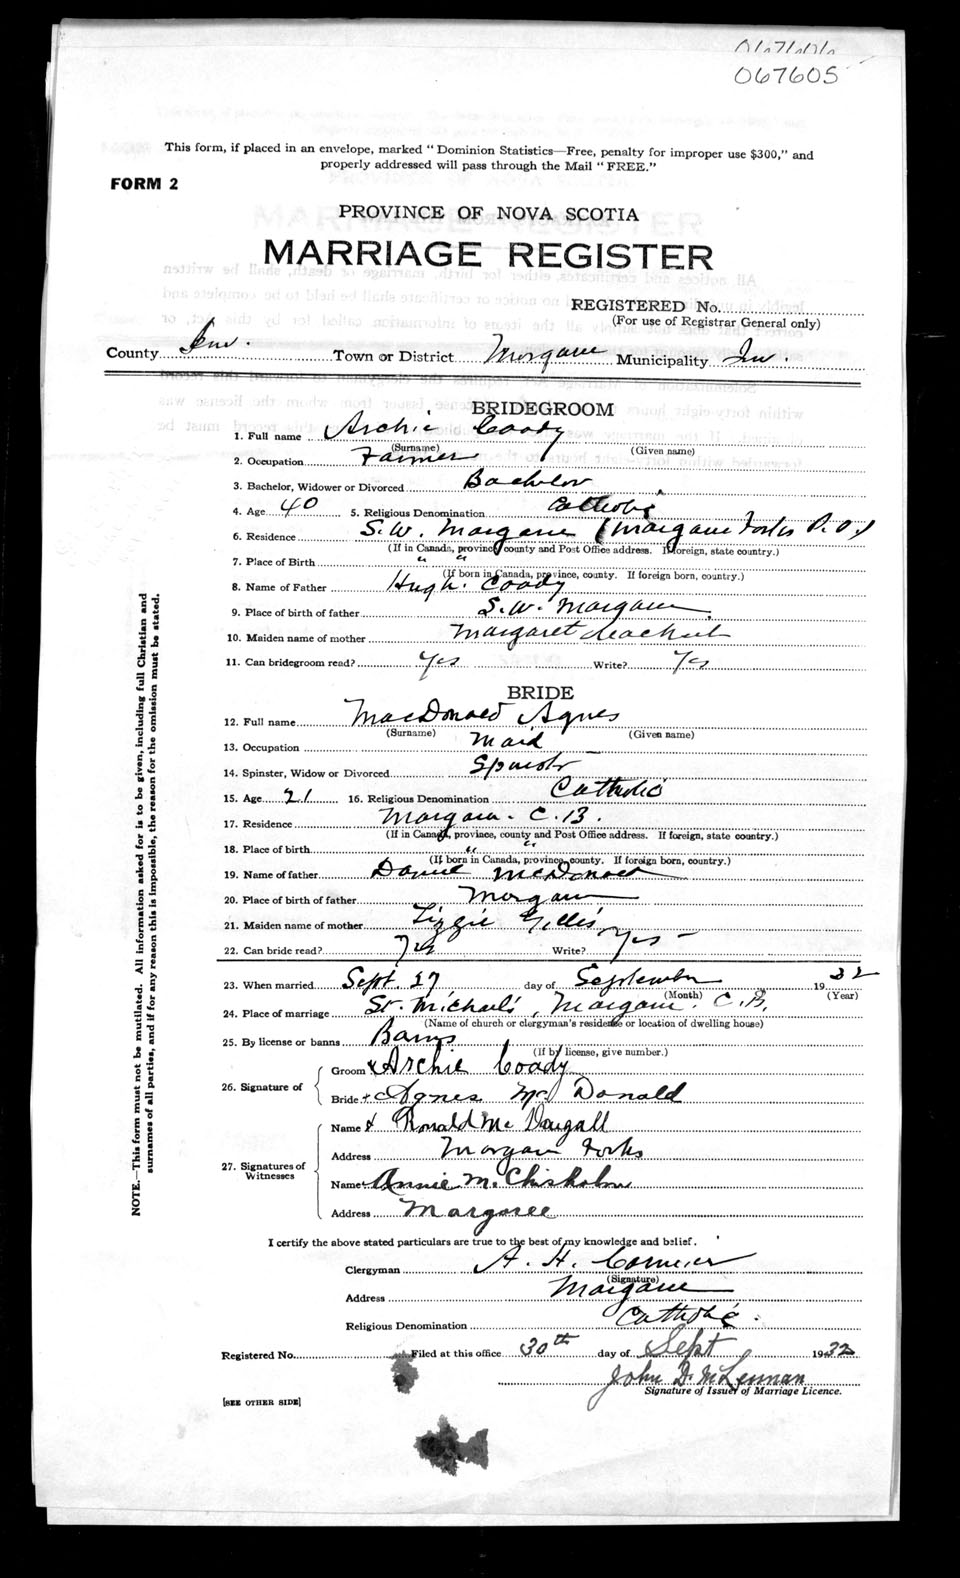 067605
This form, if placed in an envelope, marked "Dominion Statistics—Free, penalty for improper use $300," and
properly addressed will pass through the Mail "FREE."
FORM 2
PROVINCE OF NOVA SCOTIA
MARRIAGE REGISTER
REGISTERED No.
(For use of Registrar General only)
County Inv. Town or District Margaree Municipality Inv.
BRIDEGROOM
1. Full name Archie Coady
(Surname) (Given name)
2. Occupation Farmer
3. Bachelor, Widower or Divorced Bachelor
4. Age 40 5. Religious Denomination Catholic
6. Residence S.W. Margaree (Margaree Forks P.O.)
(If in Canada, province, county and Post Office address. If foreign, state country.)
7. Place of Birth " "
(If born in Canada, province, county. If foreign born, country.)
8. Name of Father Hugh Coady
9. Place of birth of father S.W. Margaree
10. Maiden name of mother Margaret
11. Can bridegroom read? Yes Write? Yes
BRIDE
12. Full name MacDonald Agnes
(Surname) (Given name)
13. Occupation Maid
14. Spinster, Widow or Divorced Spinster
15. Age 21 16. Religious Denomination Catholic
17. Residence Margaree C.B.
(If in Canada, province, county and Post Office address. If foreign, state country.)
18. Place of birth " "
(If born in Canada, province, county. If foreign born, country.)
19. Name of father McDonald
20. Place of birth of father Margaree
21. Maiden name of mother Lizzie Gillis
22. Can bride read? Yes Write? Yes
23. When married Sept. 27, day of September 1932
(Month) (Year)
24. Place of marriage St. Michael's, Margaree. C.B.
(Name of church or clergyman's residence or location of dwelling house)
25. By license or banns Banns
(If by license, give number.)
26. Signature of
Groom x Archie Coady
Bride x Agnes Mc Donald
27. Signatures of Witnesses
Name x Ronald Mc Dougall
Address Margaree Forks
Name Annie M. Chisholm
Address Margaree
I certify the above stated particulars are true to the best of my knowledge and belief.
Clergyman A. H. Cormier
(Signature)
Address Margaree
Religious Denomination Catholic.
Registered No. Filed at this office 30th day of Sept 1932
John D. McLennan
Signature of Issuer of Marriage Licence.
[SEE OTHER SIDE]
NOTE.—This form must not be mutilated. All information asked for is to be given, including full Christian and
surnames of all parties, and if for any reason this is impossible, the reason for the omission must be stated.